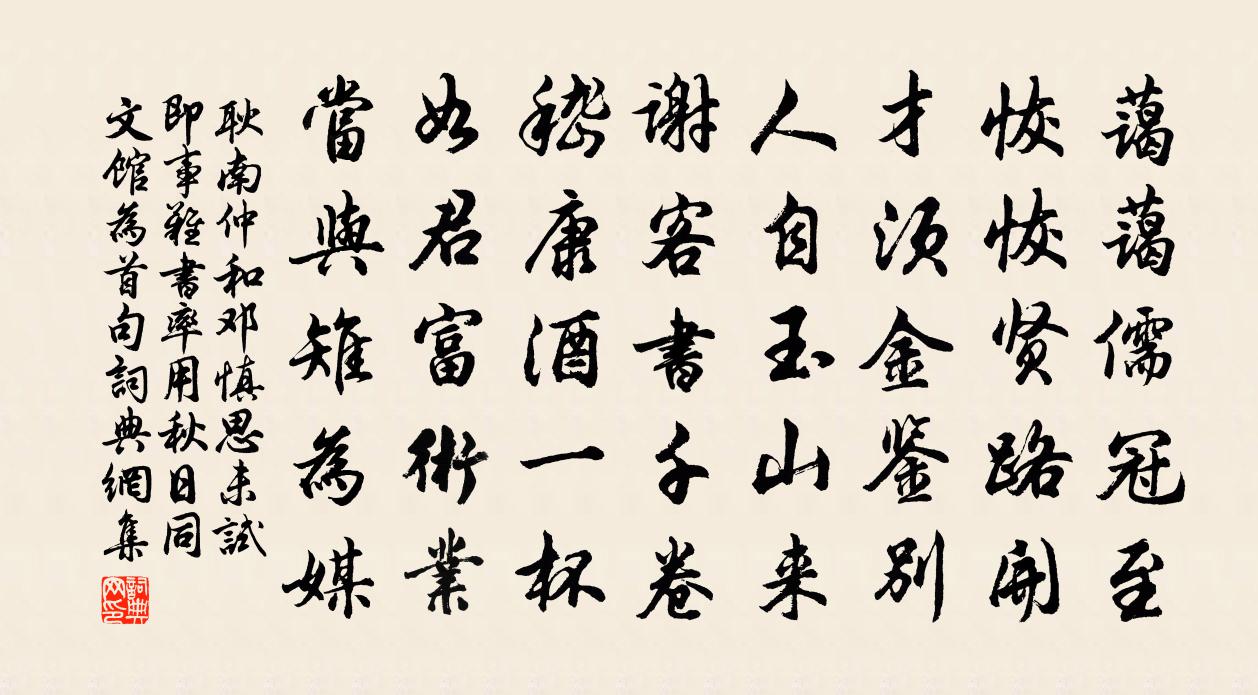 藹藹儒冠至
恢恢贤路開
才須金鉴别
人自玉山来
謝客書千卷
嵇康酒一杯
如君富術業
當與雉為媒
耿南仲和邓慎思未試
即事雜書率用秋日同
文馆為首句詞典網集